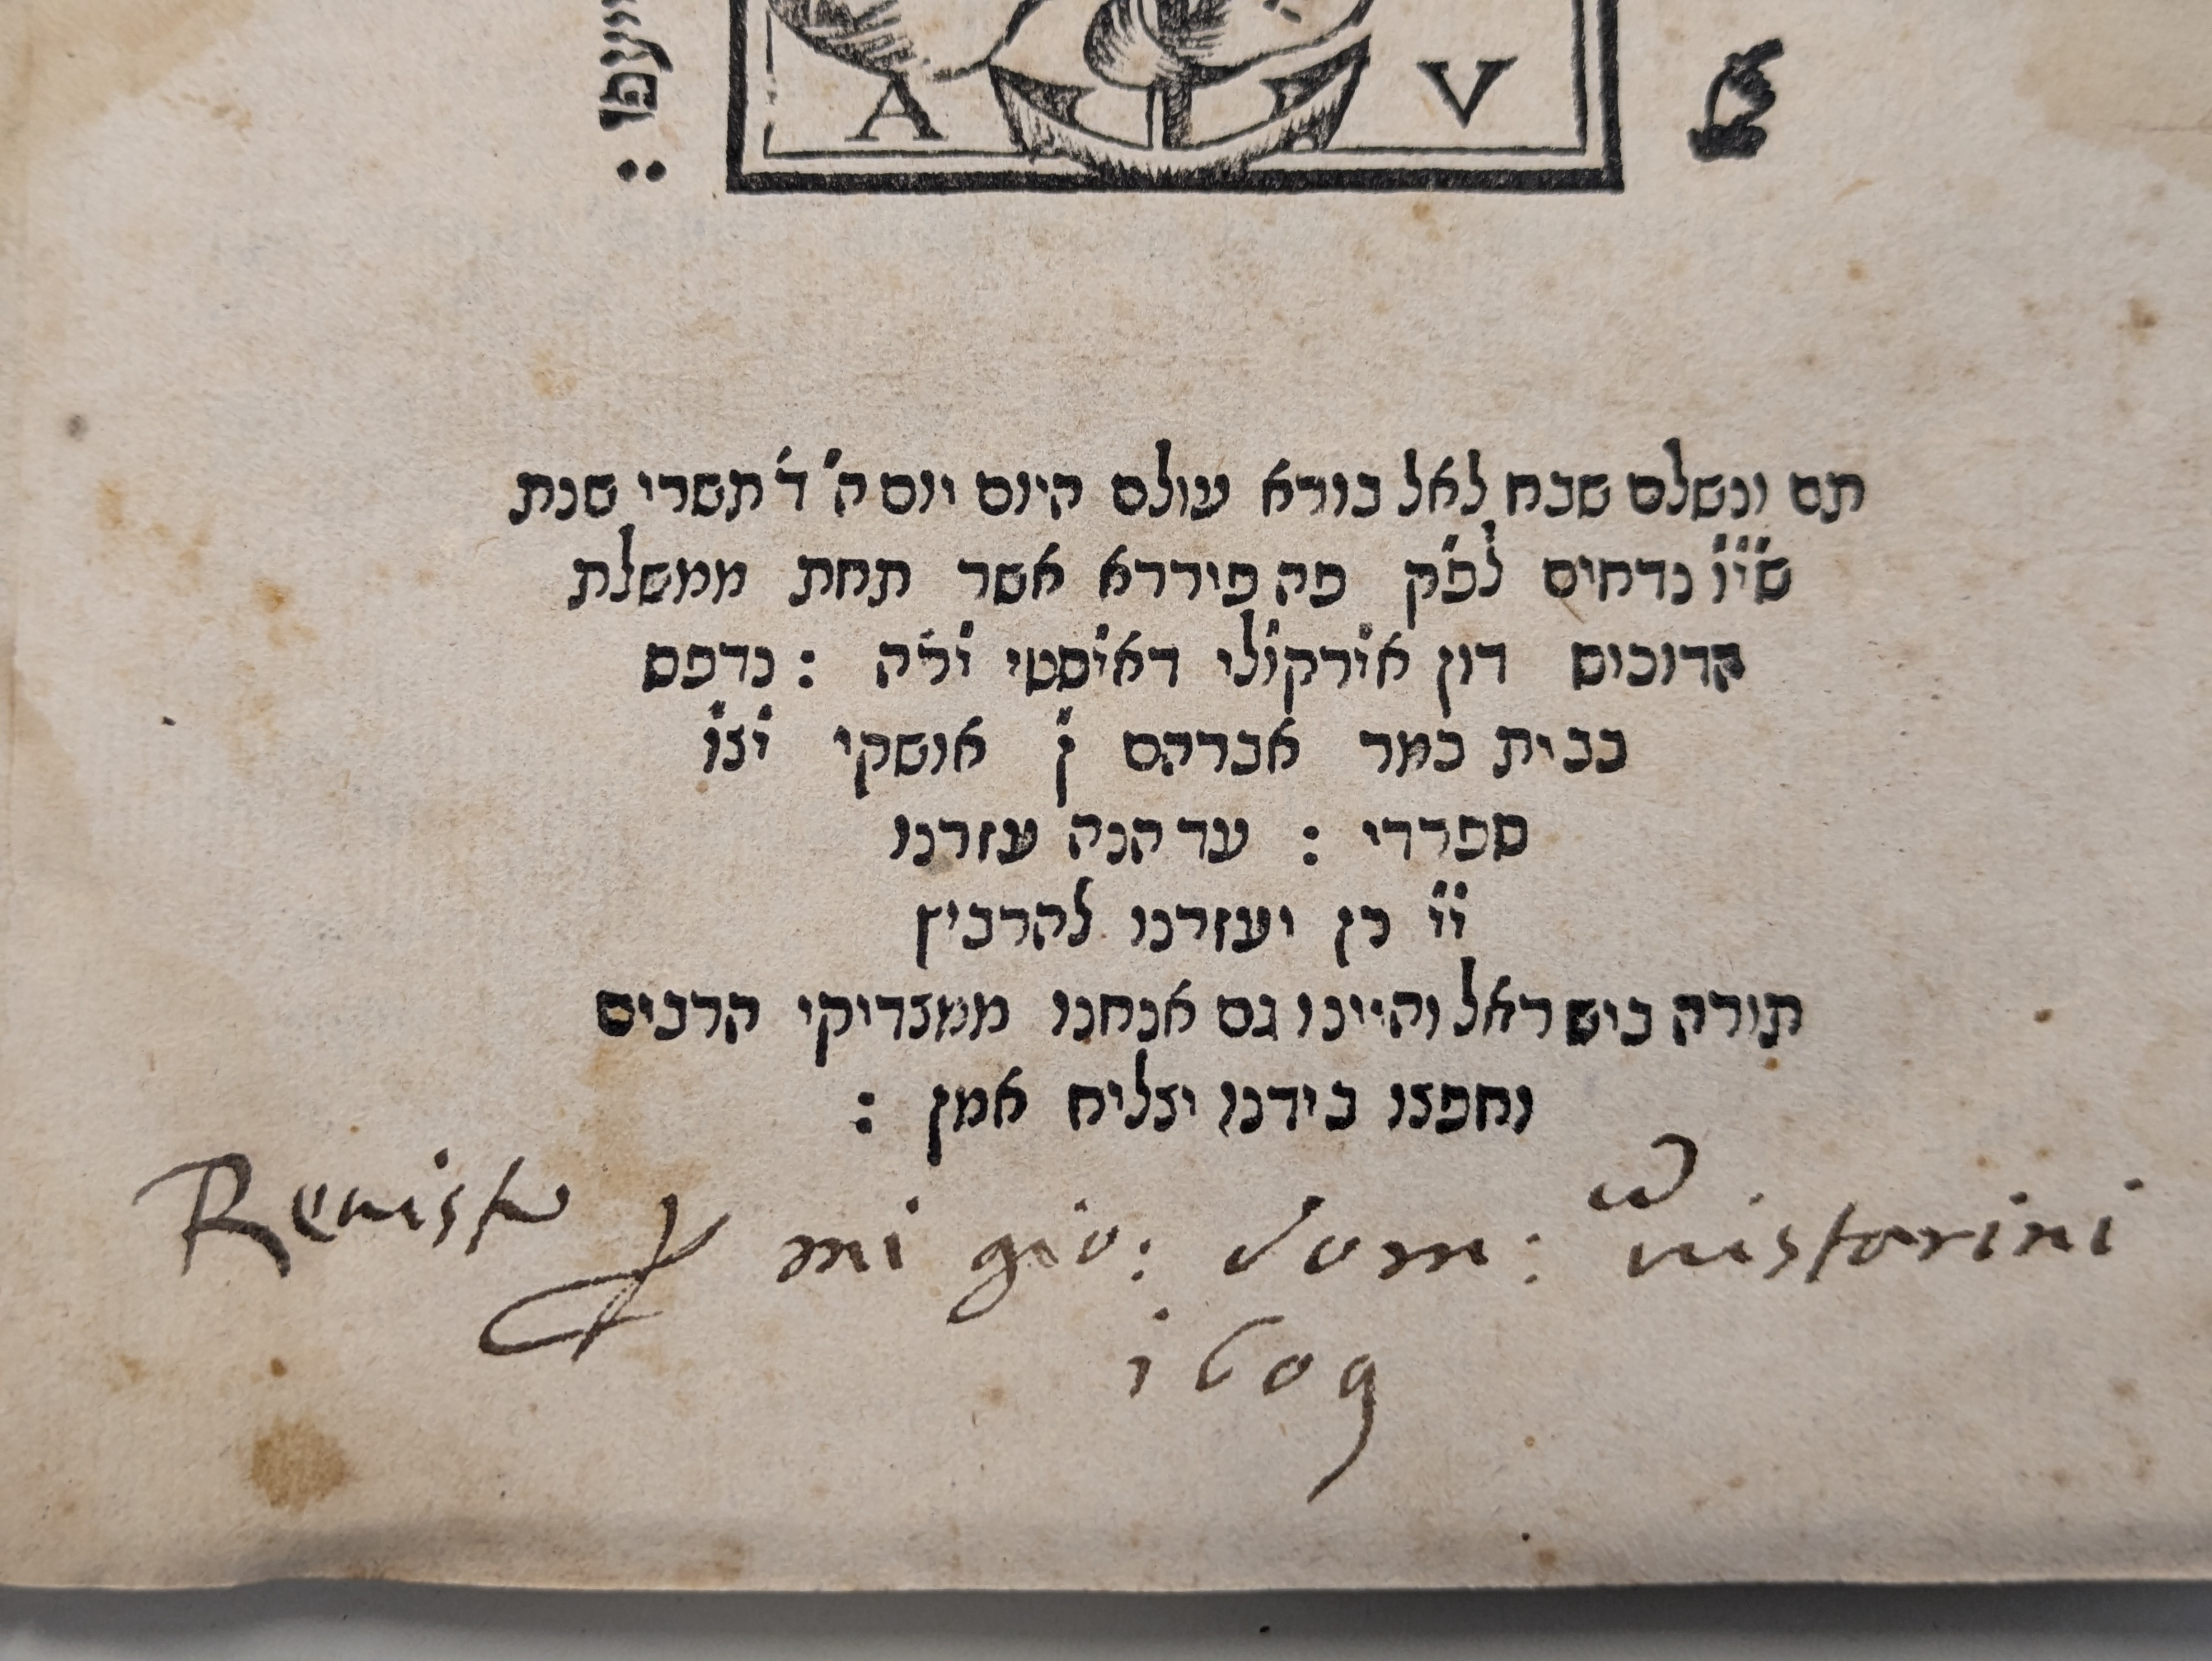 A V
תם ונשלם שבח לאל בורא עולם היום יום ה' ד' תשרי שנת
ש'י'ו' נדחים לפ'ק פה פיררא אשר תחת ממשלת
הדוכוס דון אירקולי דאיסטי יר'ה : נדפס
בבית כמר אברהם ן' אושקי יצ'ו
ספרדי : עד הנה עזרנו
י'י' כן יעזרנו להרביץ
תורה בישראל והיינו גם אנחנו ממצדיקי הרבים
וחפצו בידנו יצליח אמן :
mi gio: dom: vistorini
1609